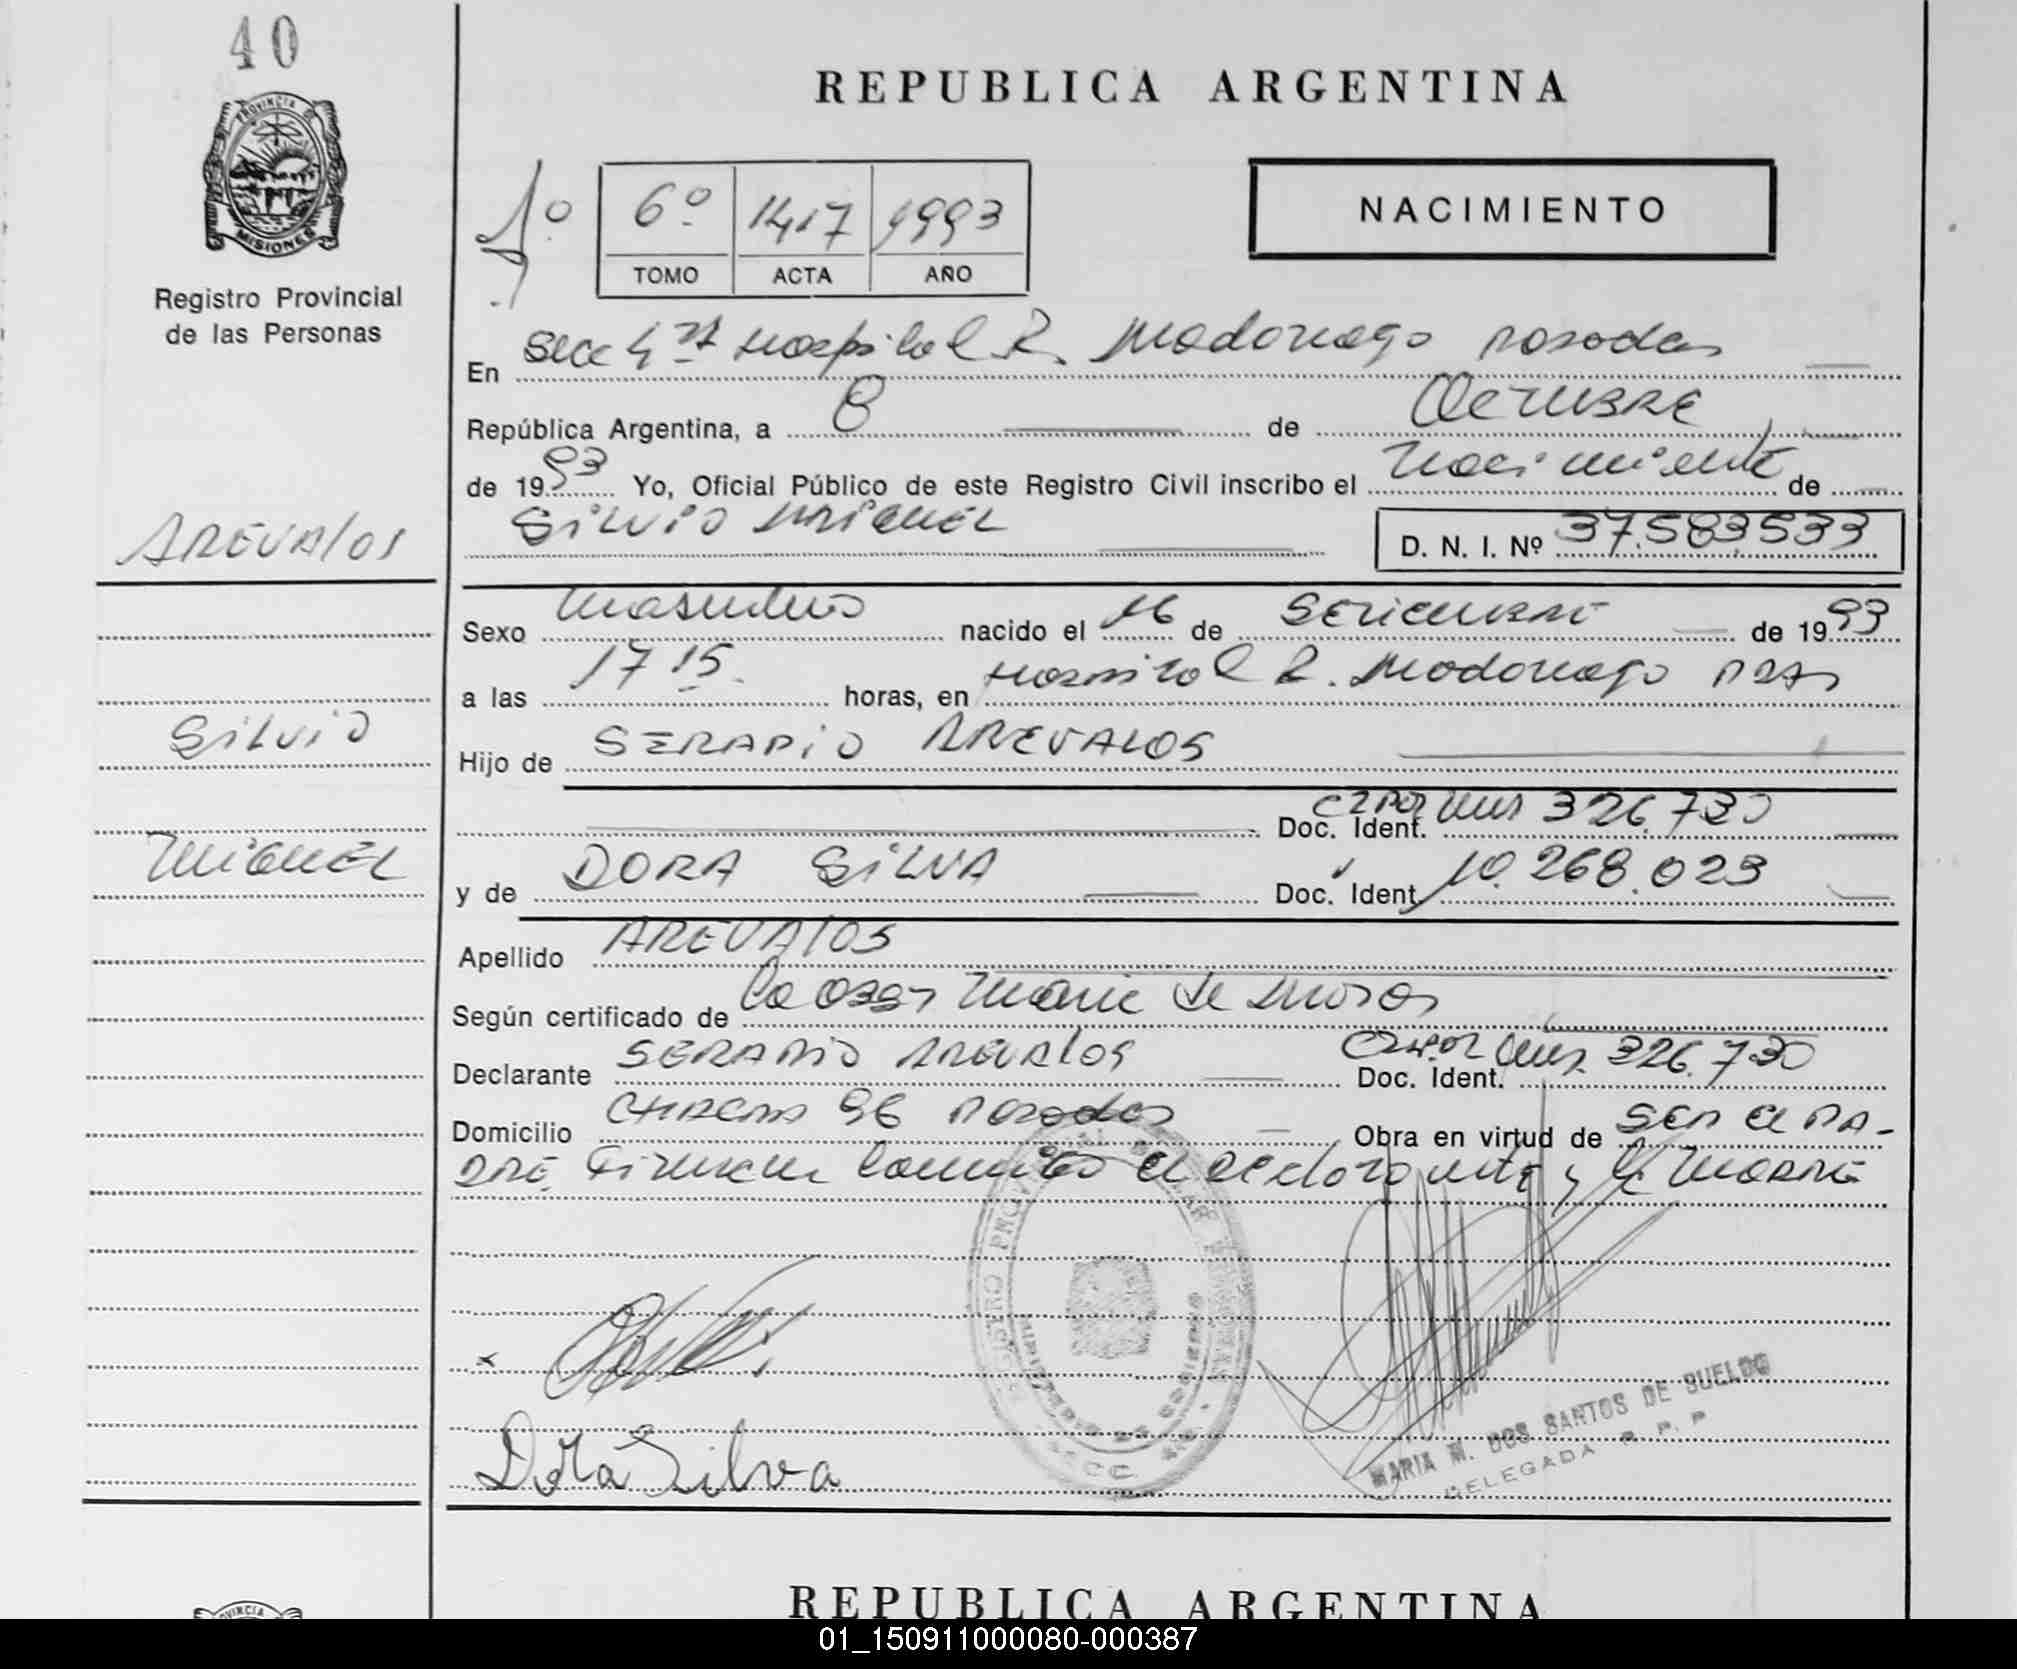 40
REPUBLICA ARGENTINA
PROVINCIA DE
MISIONES
Registro Provincial
de las Personas
1º
6º 1417 1993
TOMO ACTA AÑO
NACIMIENTO
En Secc 4ta Hospital R. Madariaga Posadas
República Argentina, a 8 de Octubre
de 1993 Yo, Oficial Público de este Registro Civil inscribo el Nacimiento de
Silvio Miguel D. N. I. Nº 37.583.533
AREVALOS
Silvio
Miguel
Sexo Masculino nacido el 16 de Setiembre de 1993
a las 17 15 horas, en Hospital R. Madariaga Pdas
Hijo de SERAPIO AREVALOS
Doc. Ident. 326.730
y de DORA SILVA Doc. Ident. 10.268.023
Apellido AREVALOS
Según certificado de la Maria de
Declarante SERAPIO AREVALOS Doc. Ident. 326.730
Domicilio CHACRA 96 Posadas Obra en virtud de ser el PA-
DRE. Firman el declarante y la Madre
Dora Silva
MARIA M. DOS SANTOS DE SUELDO
DELEGADA R. P. P
REPUBLICA ARGENTINA
01_150911000080-000387